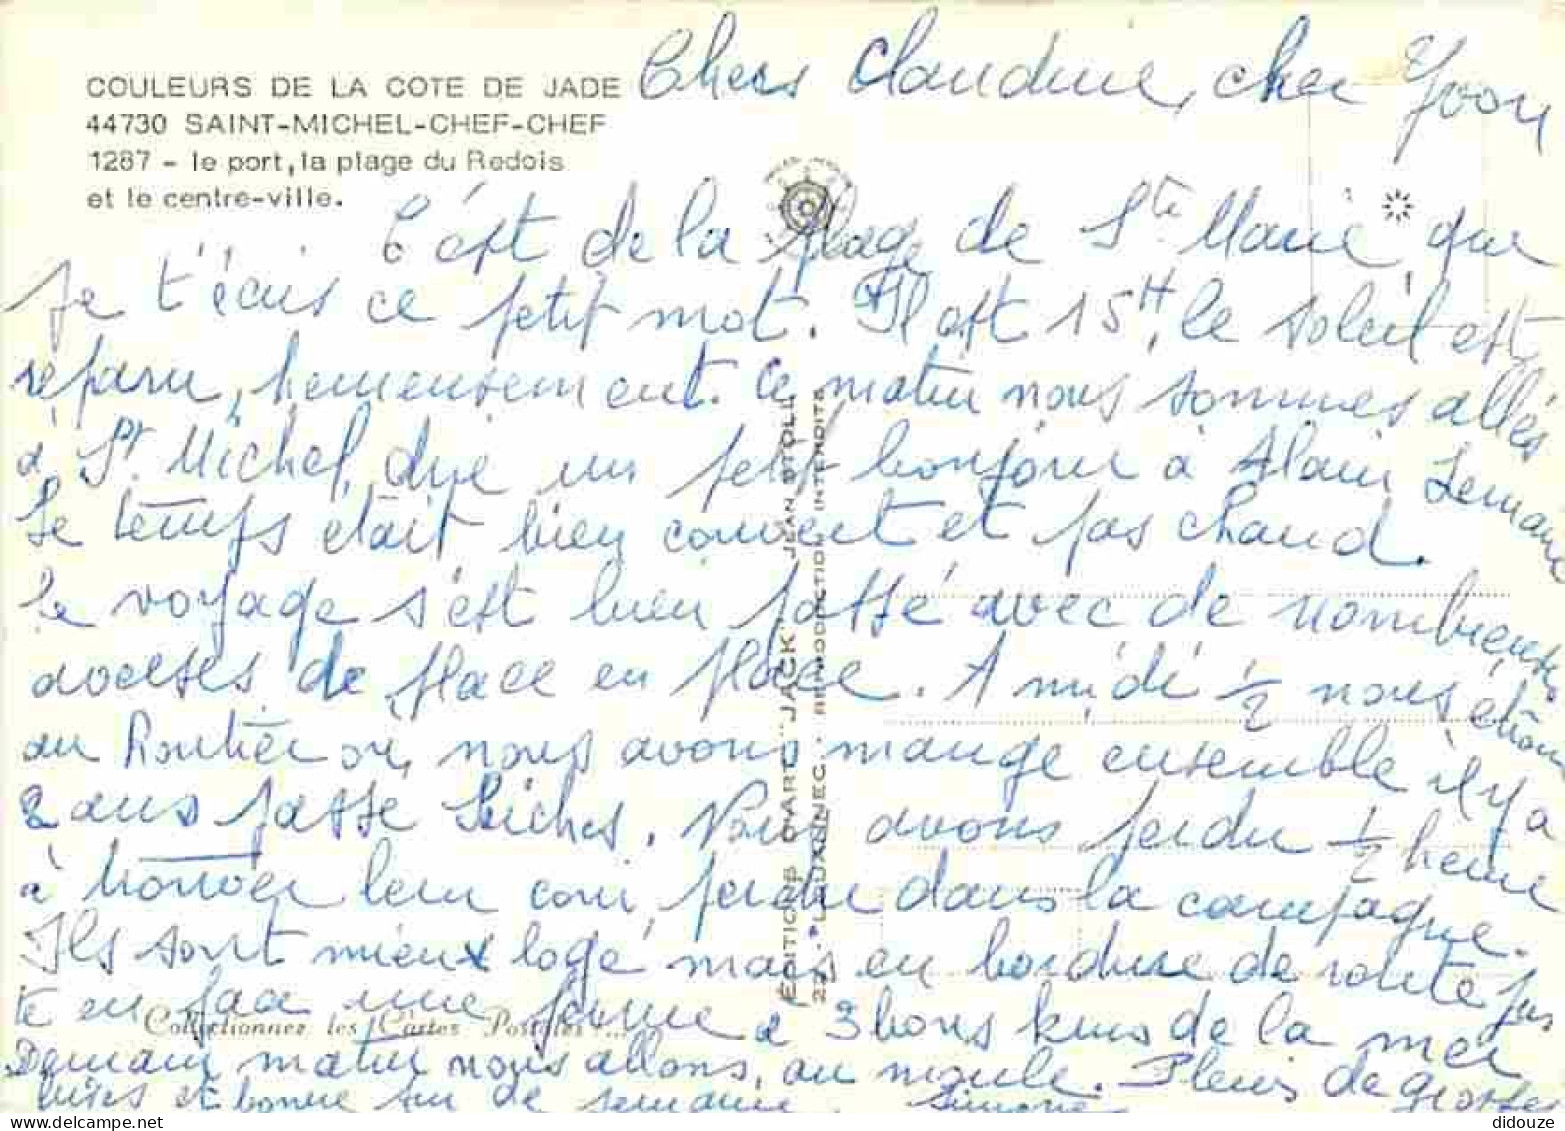 COULEURS DE LA COTE DE JADE
44730 SAINT-MICHEL-CHEF-CHEF
1287 - le port, la plage du Redois
et le centre-ville.
Chers Claudine, cher Yvon
C'est de la plage de Ste Marie que
je t'écris ce petit mot. Il est 15H, le soleil est
réparu, heureusement. Ce matin nous sommes allés
à St Michel, dire un petit bonjour à Alain
Le temps était bien couvert et pas chaud.
le voyage s'est bien passé avec de nombreuses
averses de place en place. A midi 1/2 nous étions
au Routier où nous avons mangé ensemble il y a
2 ans passé . Nous avons perdu 1/2 heure
à trouver leur coin, perdu dans la campagne.
Ils sont mieux logé mais en bordure de route jus
te en face une ferme à 3 bons kms de la mer
Demain matin nous allons, au moule. Pleins de grosses
bises et bonne fin de semaine. Simone
Collectionnez les Cartes Postales ...
ÉDITIONS D'ART "JACK" JEAN
22 - LOUANNEC - REPRODUCTION INTERDITE
didouze